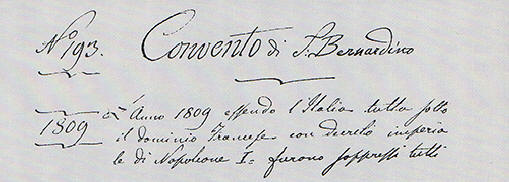 N.º 193. Convento di S. Bernardino
1809 L'Anno 1809 essendo l'Italia tutta sotto
il dominio Francese con decreto imperia
le di Napoleone I.º furono soppressi tutti